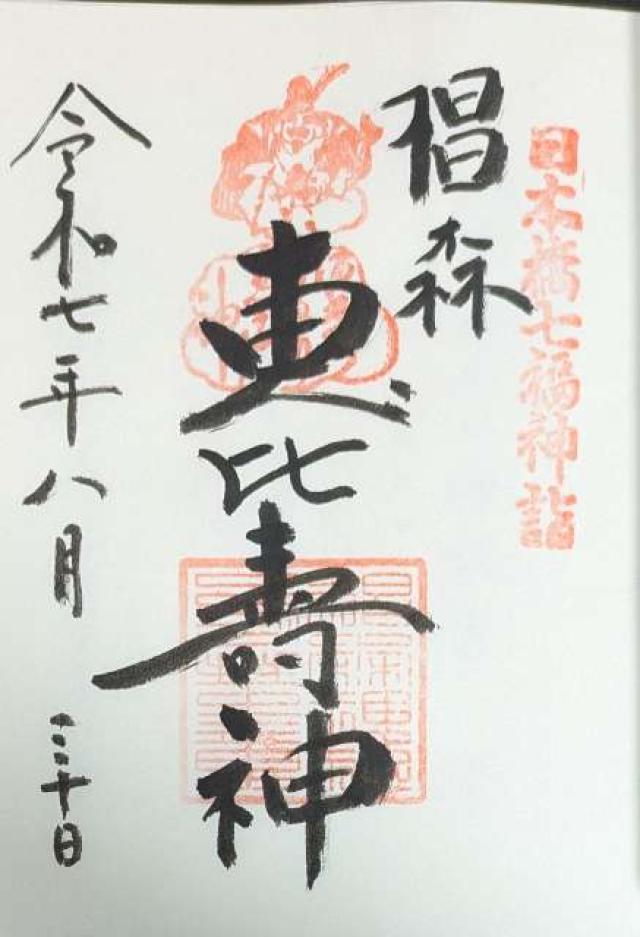 日本橋七福神詣
椙森
恵比寿神
令和七年八月三十日